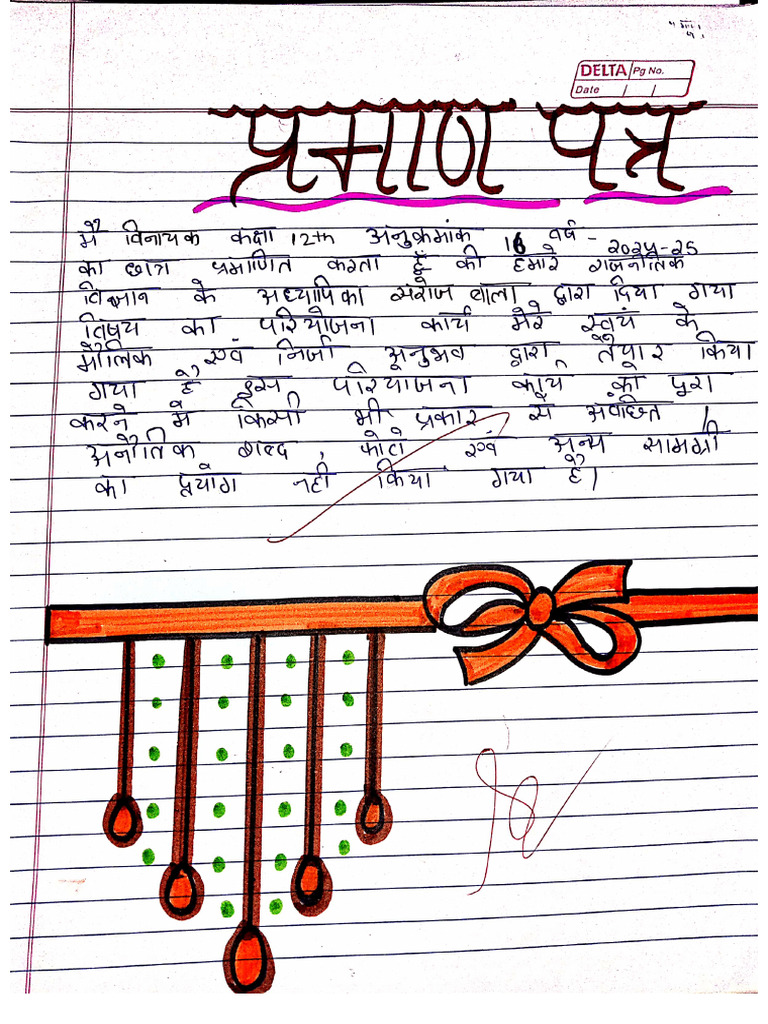 DELTA Pg No.
Date / /
प्रमाण पत्र
मैं विनायक कक्षा 12th अनुक्रमांक 16 वर्ष - २०२४-२5
का छात्र प्रमाणित करता हूँ की हमारे राजनीतिक
विज्ञान के अध्यापिका सरोज बाला द्वारा दिया गया
विषय का परियोजना कार्य मेरे स्वयं के
मौलिक एवं निजी अनुभव द्वारा तैयार किया
गया है इस परियोजना कार्य को पूरा
करने में किसी भी प्रकार से अवांछित /
अनैतिक शब्द, फोटो एवं अन्य सामग्री
का प्रयोग नही किया गया है।